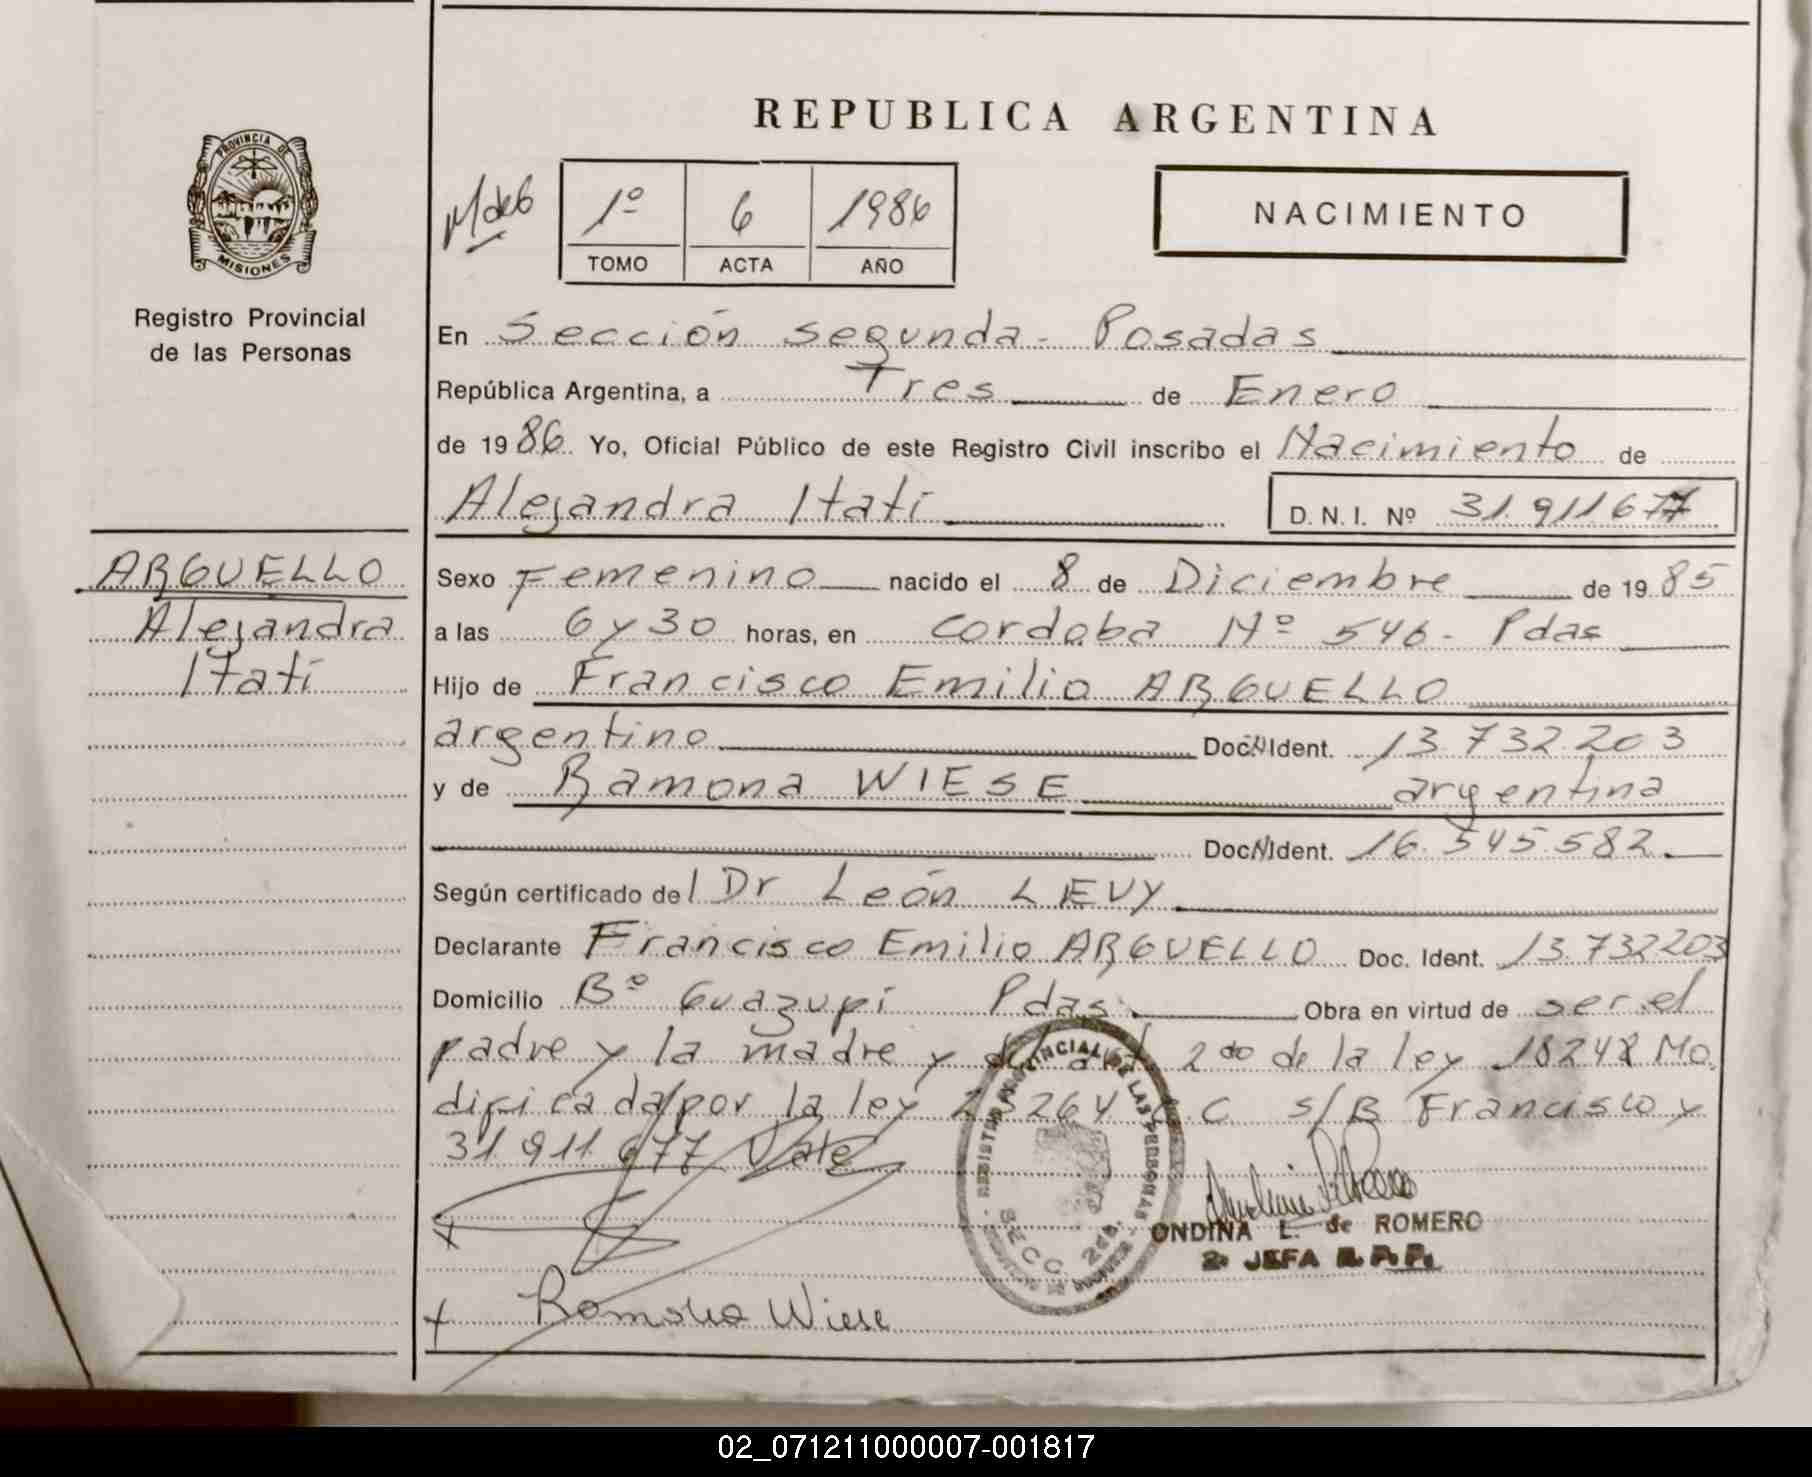 REPUBLICA ARGENTINA
PROVINCIA DE
MISIONES
Registro Provincial
de las Personas
1º 6 1986
TOMO ACTA AÑO
NACIMIENTO
En Sección segunda - Posadas
República Argentina, a Tres de Enero
de 1986. Yo, Oficial Público de este Registro Civil inscribo el Nacimiento de
Alejandra Itatí D. N. I. Nº 31.911677
ARGUELLO
Alejandra
Itatí
Sexo Femenino nacido el 8 de Diciembre de 1985
a las 6 y 30 horas, en Cordoba Nº 546 - Pdas
Hijo de Francisco Emilio ARGUELLO
argentino Doc. Ident. 13.732.203
y de Ramona WIESE argentina
Doc. Ident. 16.545.582.
Según certificado del Dr León LEVY
Declarante Francisco Emilio ARGUELLO Doc. Ident. 13.732203
Domicilio Bº Guazupí Pdas. Obra en virtud de ser el
padre y la madre y del art. 2do de la ley 18248 Mo
dificada por la ley 23264 C.C. s/B Francisco y
31.911.677 Vale
REGISTRO PROVINCIAL DE LAS PERSONAS
SECC. 2da.
ONDINA L. de ROMERO
2ª JEFA R. P. P.
Ramona Wiese
02_071211000007-001817